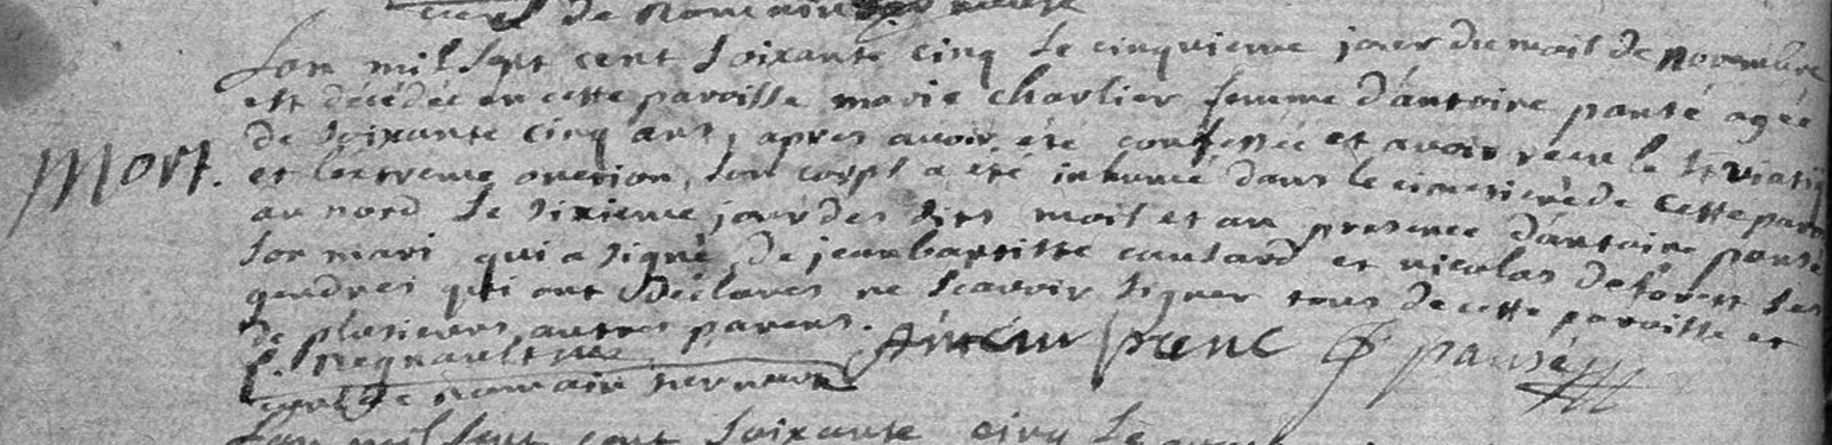 curé de Romain sur meuse
Lan mil Sept cent Soixante cinq Le cinquieme jour du mois de novembre
est décédée en cette paroisse marie charlier femme d'antoine pansé agée
de Soixante cinq ans, apres avoir été confessée et avoir recu le St viatiq
et lextreme onction, Son corps a été inhumé dans le cimetiere de cette paro
au nord Le Sixieme jour des dits mois et an presence d'antoine pansé
Son mari qui a Signé, de jean baptiste coutard et nicolas deforest Ses
gendres qui ont Déclarés ne Scavoir Signer tous de cette paroisse et
de plusieurs autres parens.
Mort.
f. Regnault
curé de Romain sur meuse
pansé
Lan mil Sept cent Soixante cinq Le